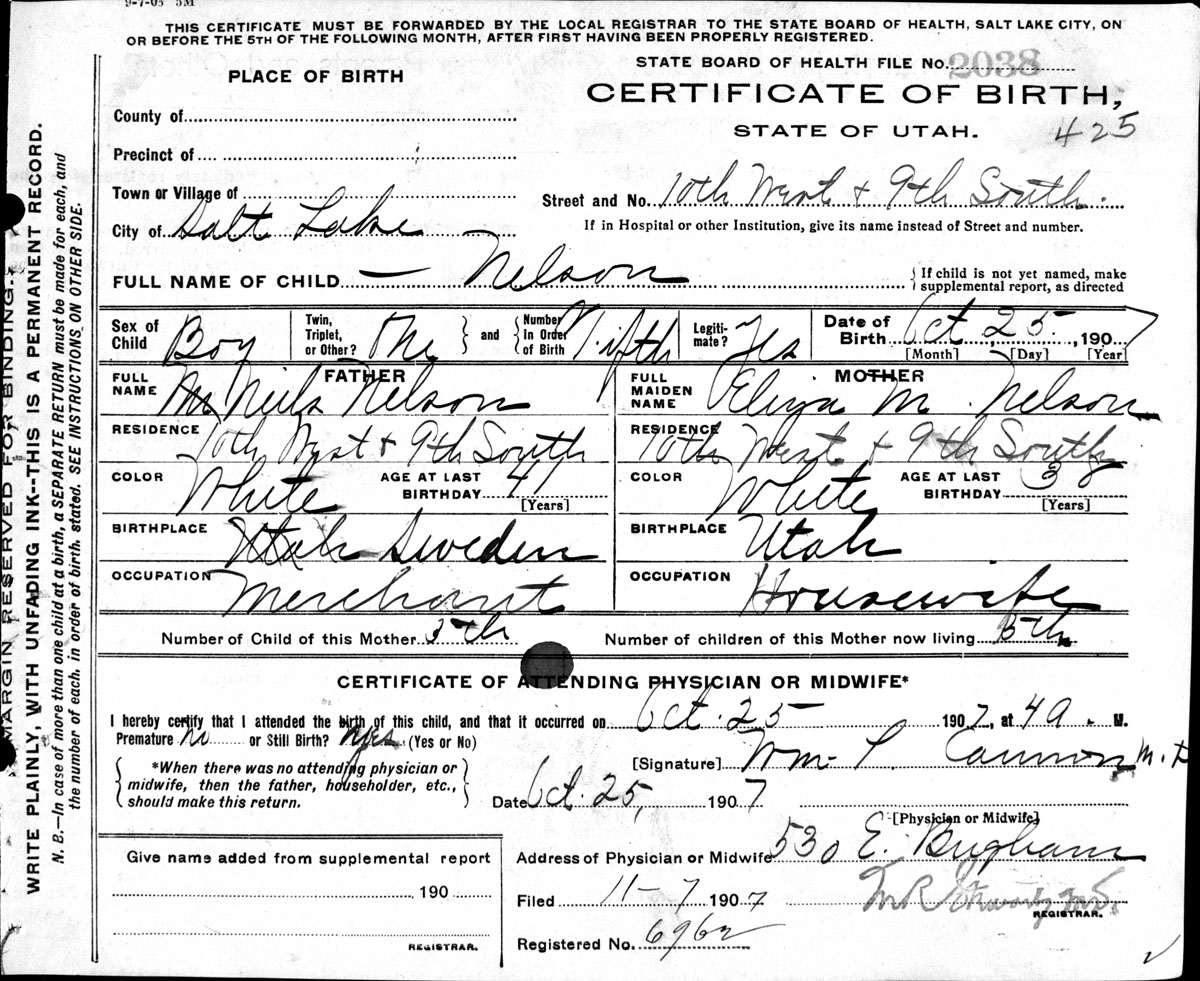 9-7-05 5M
THIS CERTIFICATE MUST BE FORWARDED BY THE LOCAL REGISTRAR TO THE STATE BOARD OF HEALTH, SALT LAKE CITY, ON
OR BEFORE THE 5TH OF THE FOLLOWING MONTH, AFTER FIRST HAVING BEEN PROPERLY REGISTERED.
STATE BOARD OF HEALTH FILE No. 2038
PLACE OF BIRTH
CERTIFICATE OF BIRTH,
STATE OF UTAH.
425
County of
Precinct of
Town or Village of
City of Salt Lake
Street and No. 10th West + 9th South.
If in Hospital or other Institution, give its name instead of Street and number.
FULL NAME OF CHILD — Nelson
{ If child is not yet named, make
supplemental report, as directed
Sex of Child Boy
Twin, Triplet, or Other? } and { Number In Order of Birth Fifth
Legitimate? Yes
Date of Birth Oct, 25, 1907
[Month] [Day] [Year]
FATHER
FULL NAME Neils Nelson
MOTHER
FULL MAIDEN NAME Eliza M. Nelson
RESIDENCE 10th West + 9th South
RESIDENCE 10th West + 9th South
COLOR White AGE AT LAST BIRTHDAY 41 [Years]
COLOR White AGE AT LAST BIRTHDAY 38 [Years]
BIRTHPLACE Utah Sweden
BIRTHPLACE Utah
OCCUPATION Merchant
OCCUPATION Housewife
Number of Child of this Mother 5th
Number of children of this Mother now living 5th
CERTIFICATE OF ATTENDING PHYSICIAN OR MIDWIFE*
I hereby certify that I attended the birth of this child, and that it occurred on Oct. 25 1907, at 4 a. M.
Premature No or Still Birth? (Yes or No)
[Signature] Wm. T. Cannon M.D
*When there was no attending physician or
midwife, then the father, householder, etc.,
should make this return.
Date Oct. 25, 1907
[Physician or Midwife]
Give name added from supplemental report
190
REGISTRAR.
Address of Physician or Midwife 530 E. Brigham
Filed 11-7 1907
REGISTRAR.
Registered No. 6962
MARGIN RESERVED FOR BINDING.
WRITE PLAINLY, WITH UNFADING INK--THIS IS A PERMANENT RECORD.
N. B.—In case of more than one child at a birth, a SEPARATE RETURN must be made for each, and
the number of each, in order of birth, stated. SEE INSTRUCTIONS ON OTHER SIDE.